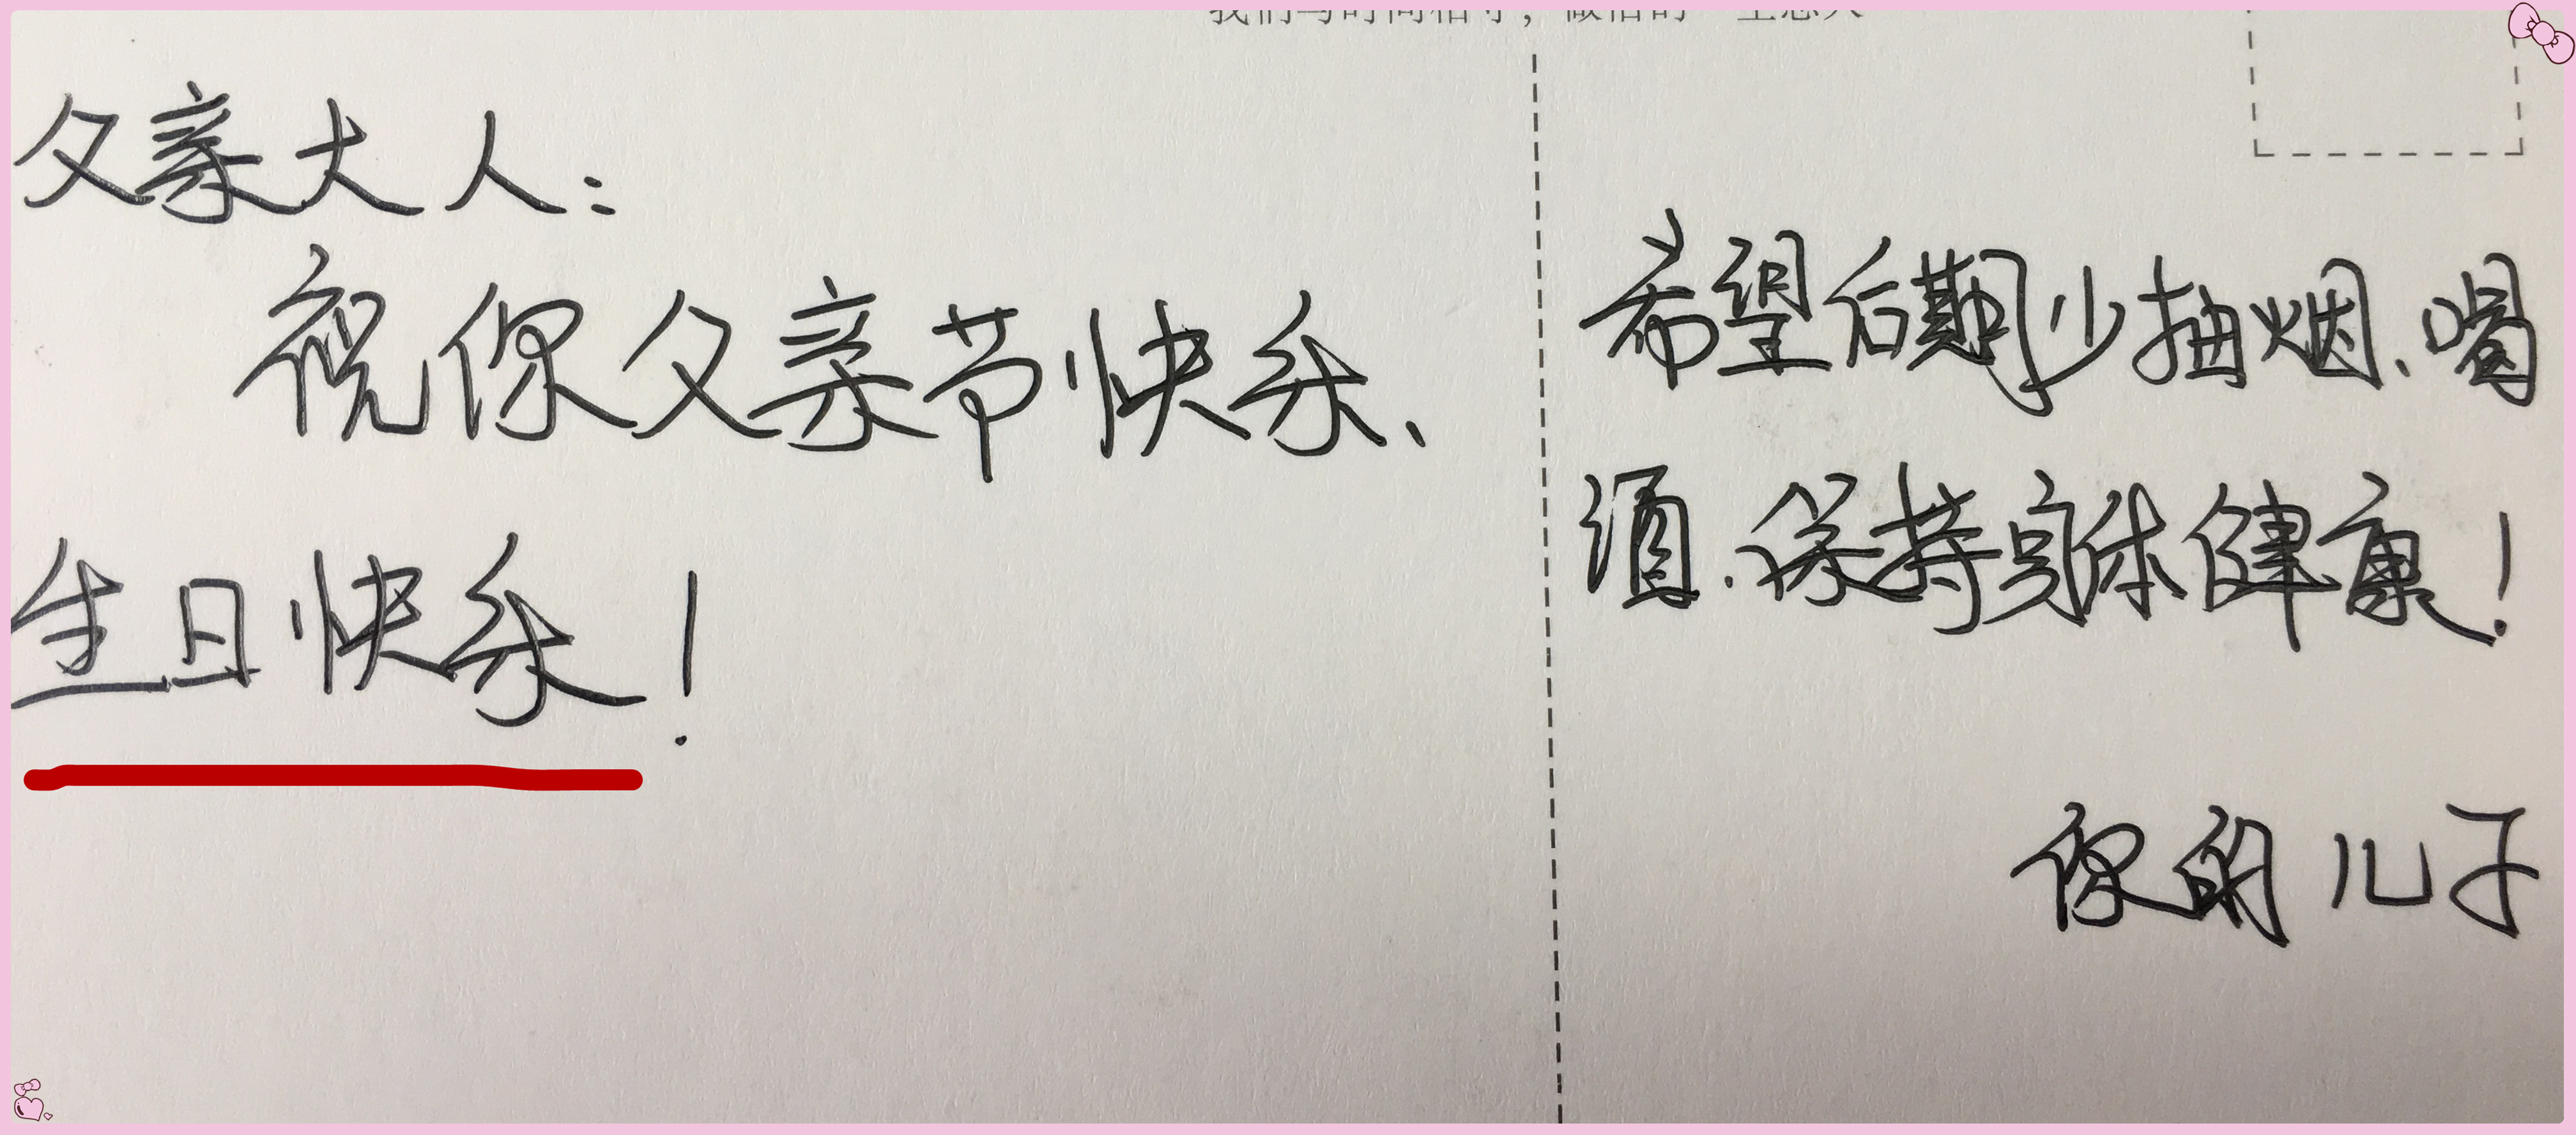 父亲大人：
祝你父亲节快乐、
生日快乐！
希望后期少抽烟、喝
酒.保持身体健康！
你的儿子